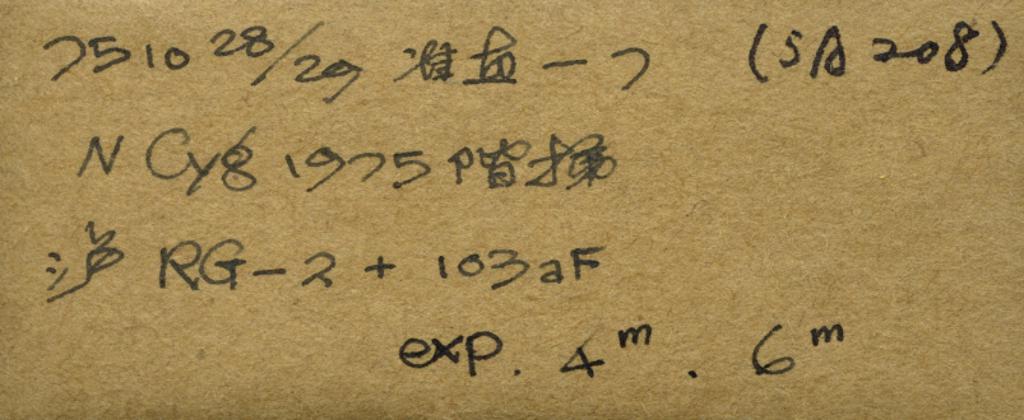 751028/29 准直一7 (SA 208)
N Cyg 1975 階梯
沪 RG-2 + 103aF
exp. 4m . 6m